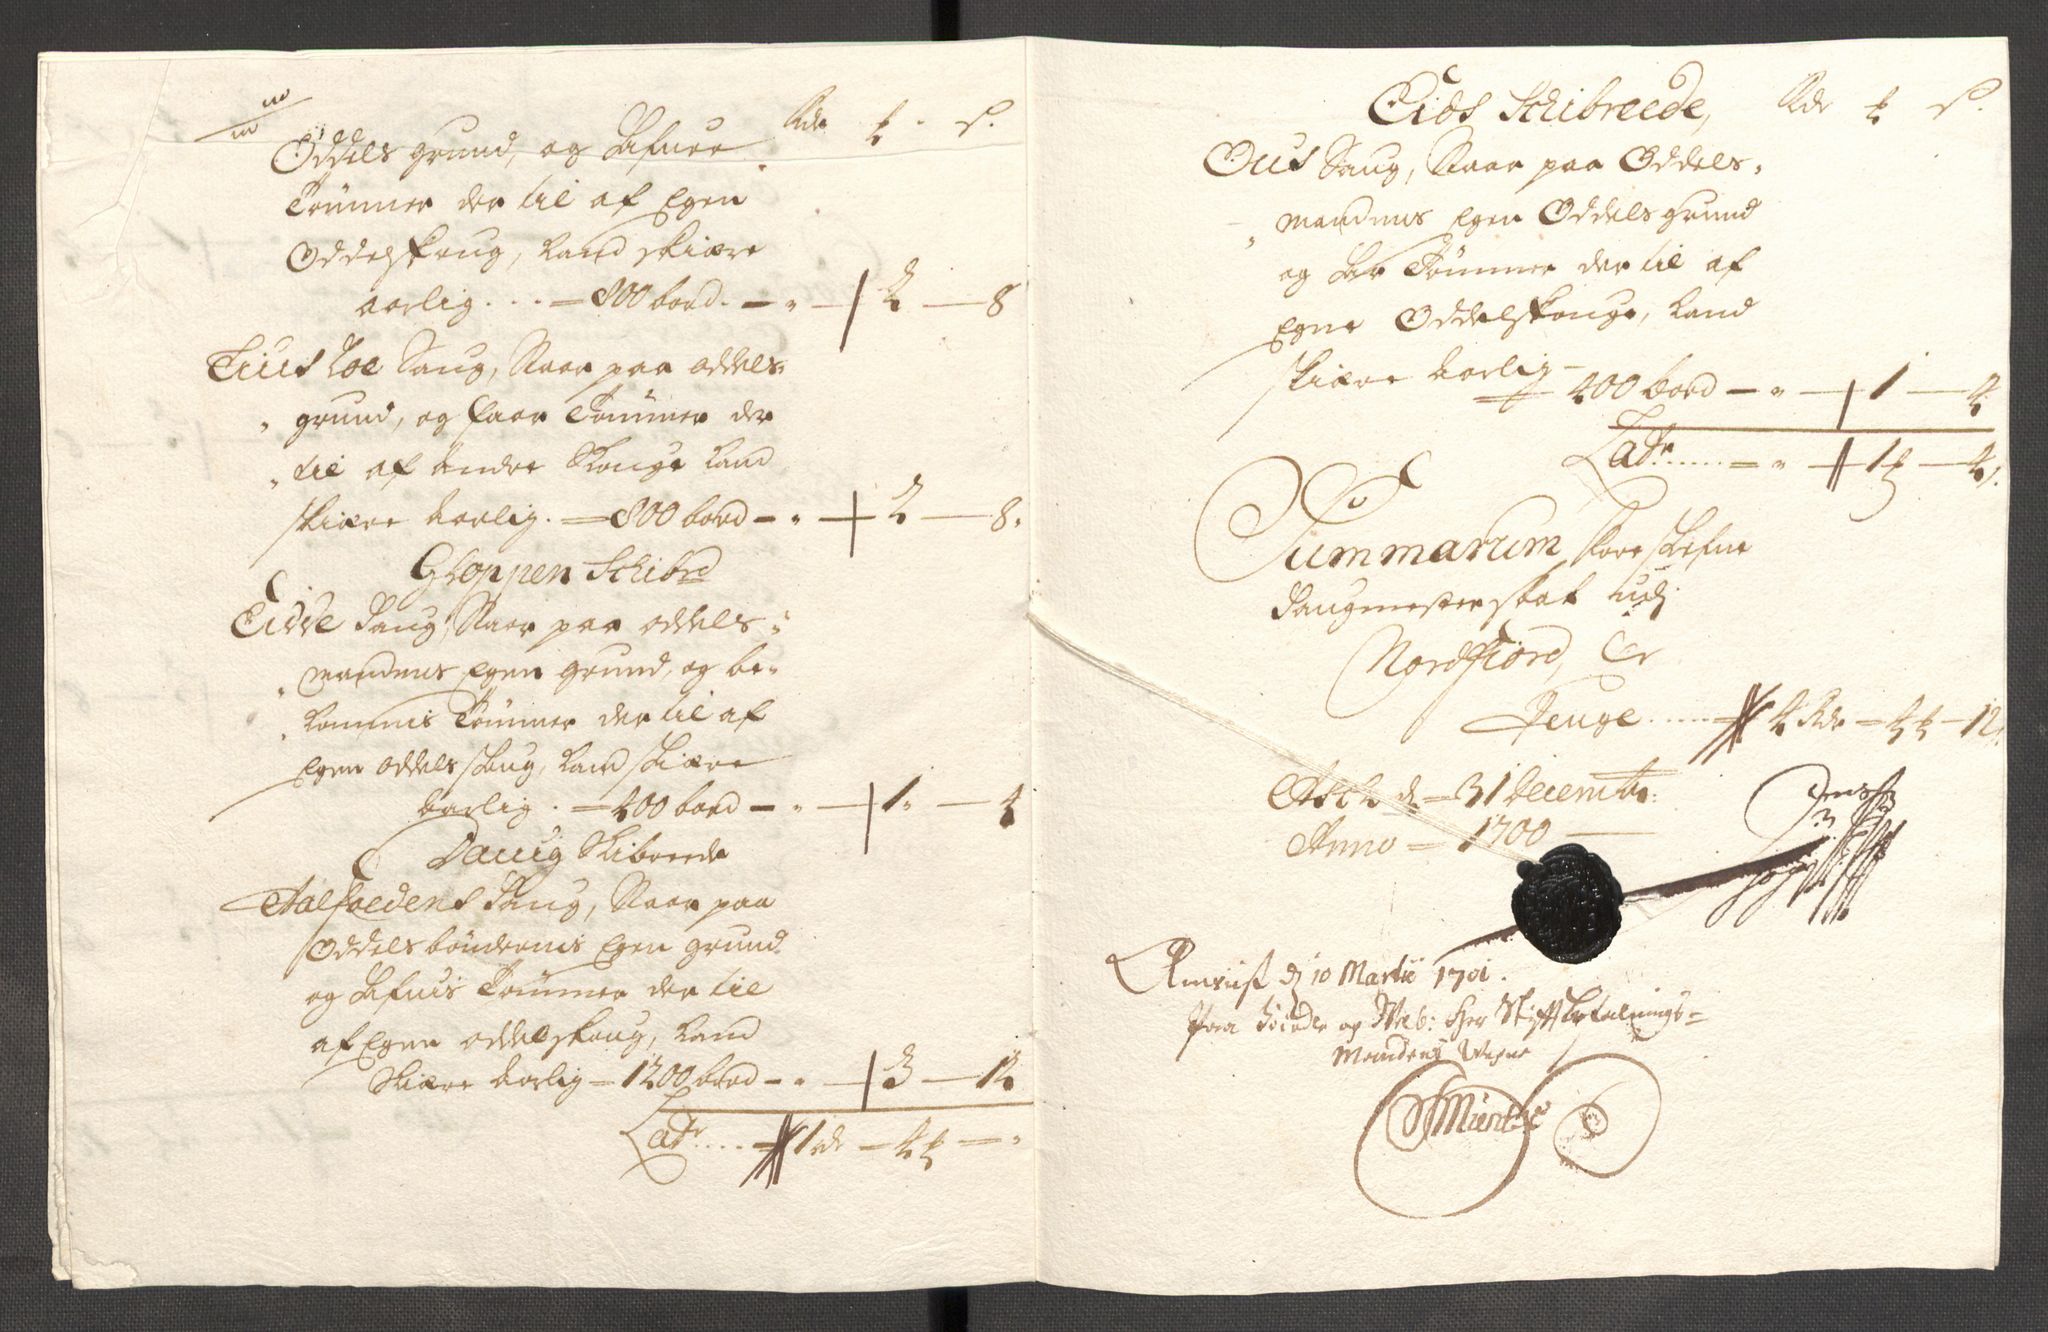 Rdr ₰ s.
Oddels grund, og hafuer
Tømmer der til af Egen
Oddelskoug, kand skiære
aarlig . . . = 800 bord. – " – 2 – 8
Saug, Staar paa oddels-
grund, og faar Tømmer der
til af andre Skouge kand
skiære aarlig. = 800 bord – " – 2 – 8.
Gloppen Schibrd
Eide Saug, Staar paa oddels-
mandens Egen grund, og be-
kommis Tømmer der til af
Egen oddels skoug, kand skiære
aarlig . = 400 bord – " – 1 – 4
Dauig Skibrede
Aalfoedens Saug, Staar paa
Oddels bøndernis Egen grund
og hafuis Tømmer der til
af Egen oddelskoug, kand
Skiære aarlig = 1200 bord – " – 3 – 12
Latr ..... 1 rdr – 4 – "
Eids Schibreede, Rdr s.
Ous Saug, Staar paa Oddels-
mandens Egen Oddels grund
og har Tømmer der til af
Egne Oddelskouge, kand
skiære aarlig –
400 bord – " – 1 – 4
Latr ...... = " – 1 – 4.
Summarum foreskrefne
Saugmester skat udj
Nordfiord, Er
Penge ...... 4 Rdr – 4 – 12
d = 31 Decembr:
Anno = 1700
d 10 Martii 1701.
Paa og Welb: Hr Stiftbefalnings-
Mandens Vegne
Münthe